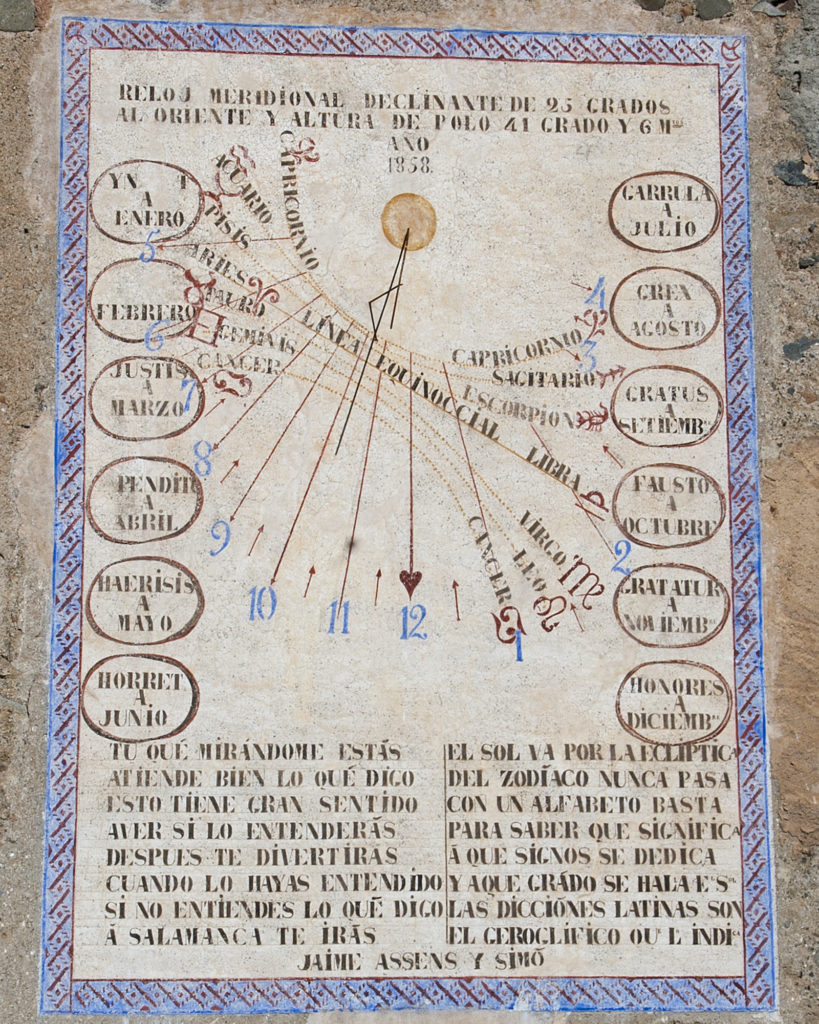 RELOJ MERIDIONAL DECLINANTE DE 25 GRADOS
AL ORIENTE Y ALTURA DE POLO 41 GRADO Y 6 Mᵗᵒˢ
ANO
1858.
A
ENERO
FEBRERO
JUSTIS
A
MARZO
PENDIT
A
ABRIL
HAERISIS
A
MAYO
HORRET
A
JUNIO
GARRULA
A
JULIO
GREX
A
AGOSTO
GRATUS
A
SETIEMBᵉ
FAUSTO
A
OCTUBRE
GRATATUR
A
NOVIEMBʳᵉ
HONORES
A
DICIEMBʳᵉ
CAPRICORNIO
ACUARIO
PISIS
ARIES
TAURO
GEMINAS
CANCER
LÍNEA EQUINOCCIAL
CAPRICORNIO
SAGITARIO
ESCORPION
LIBRA
VIRGO
LEO
CANCER
5
6
7
8
9
10
11
12
1
2
3
4
TU QUÉ MIRÁNDOME ESTÁS
ATIENDE BIEN LO QUÉ DIGO
ESTO TIENE GRAN SENTIDO
AVER SI LO ENTENDERÁS
DESPUES TE DIVERTIRÁS
CUANDO LO HAYAS ENTENDIDO
SI NO ENTIENDES LO QUÉ DIGO
Á SALAMANCA TE IRÁS
EL SOL VA POR LA ECLIPTICA
DEL ZODÍACO NUNCA PASA
CON UN ALFABETO BASTA
PARA SABER QUE SIGNIFICA
Á QUE SIGNOS SE DEDICA
Y A QUE GRÁDO SE HALA
LAS DICCIÓNES LATINAS SON
EL GEROGLÍFICO
JAIME ASSENS Y SIMÓ